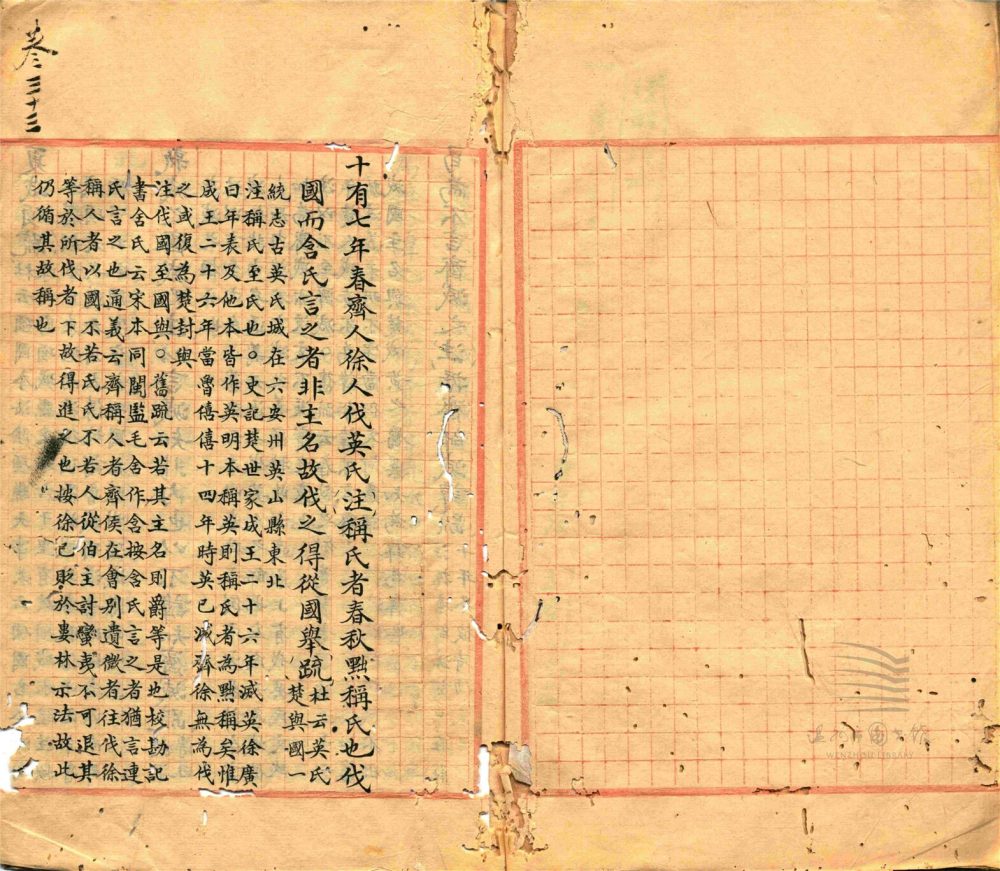 卷三十三
十有七年春齊人徐人伐英氏注稱氏者春秋黜稱氏也伐
國而舍氏言之者非主名故伐之得從國舉疏杜云英氏
楚與國一
統志古英氏城在六安州英山縣東北
注稱氏至氏也。史記楚世家成王二十六年滅英徐廣
曰年表及他本皆作英明本稱英則稱氏者為黜稱矣惟
成王二十六年當魯僖僖十四年時英已滅齊徐無為伐
之或復為楚封與
注伐國至國與。舊疏云若其主名則爵等是也校勘記
書舍氏云宋本同閩監毛舍作含按舍氏言之者猶言連
氏言之也通義云齊稱人者齊侯在會別遺微者往伐徐
稱人者以國不若氏氏不若人從伯主討蠻夷不可退其
等於所伐者下故得進之也按徐已敗於婁林示法故此
仍循其故稱也
溫州市圖書館
WENZHOU LIBRARY